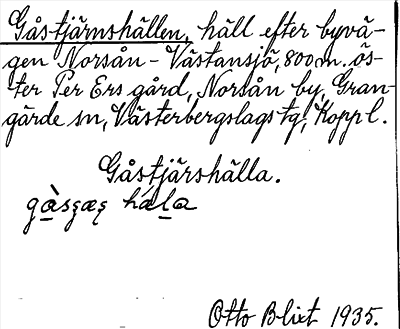 Gåstjärnshällen, häll efter byvä-
gen Norsån - Västansjö, 800 m. ös-
ter Per Ers gård, Norsån by, Gran-
gärde sn, Västerbergslags tg, Kopp l.
Gåstjärshälla.
Otto Blixt 1935.